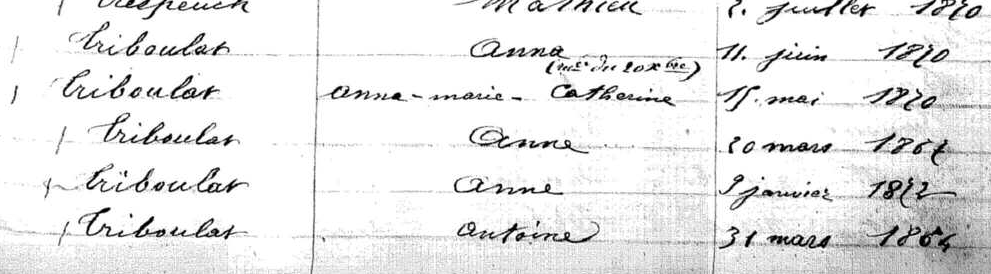 Mathieu 2. juillet 1870
Triboulat Anna 11. juin 1870
(née du 20 Xbre)
Triboulat Anna-marie-Catherine 15. mai 1870
Triboulat Anne 20 mars 1867
Triboulat Anne 9 janvier 1872
Triboulat Antoine 31 mars 1864